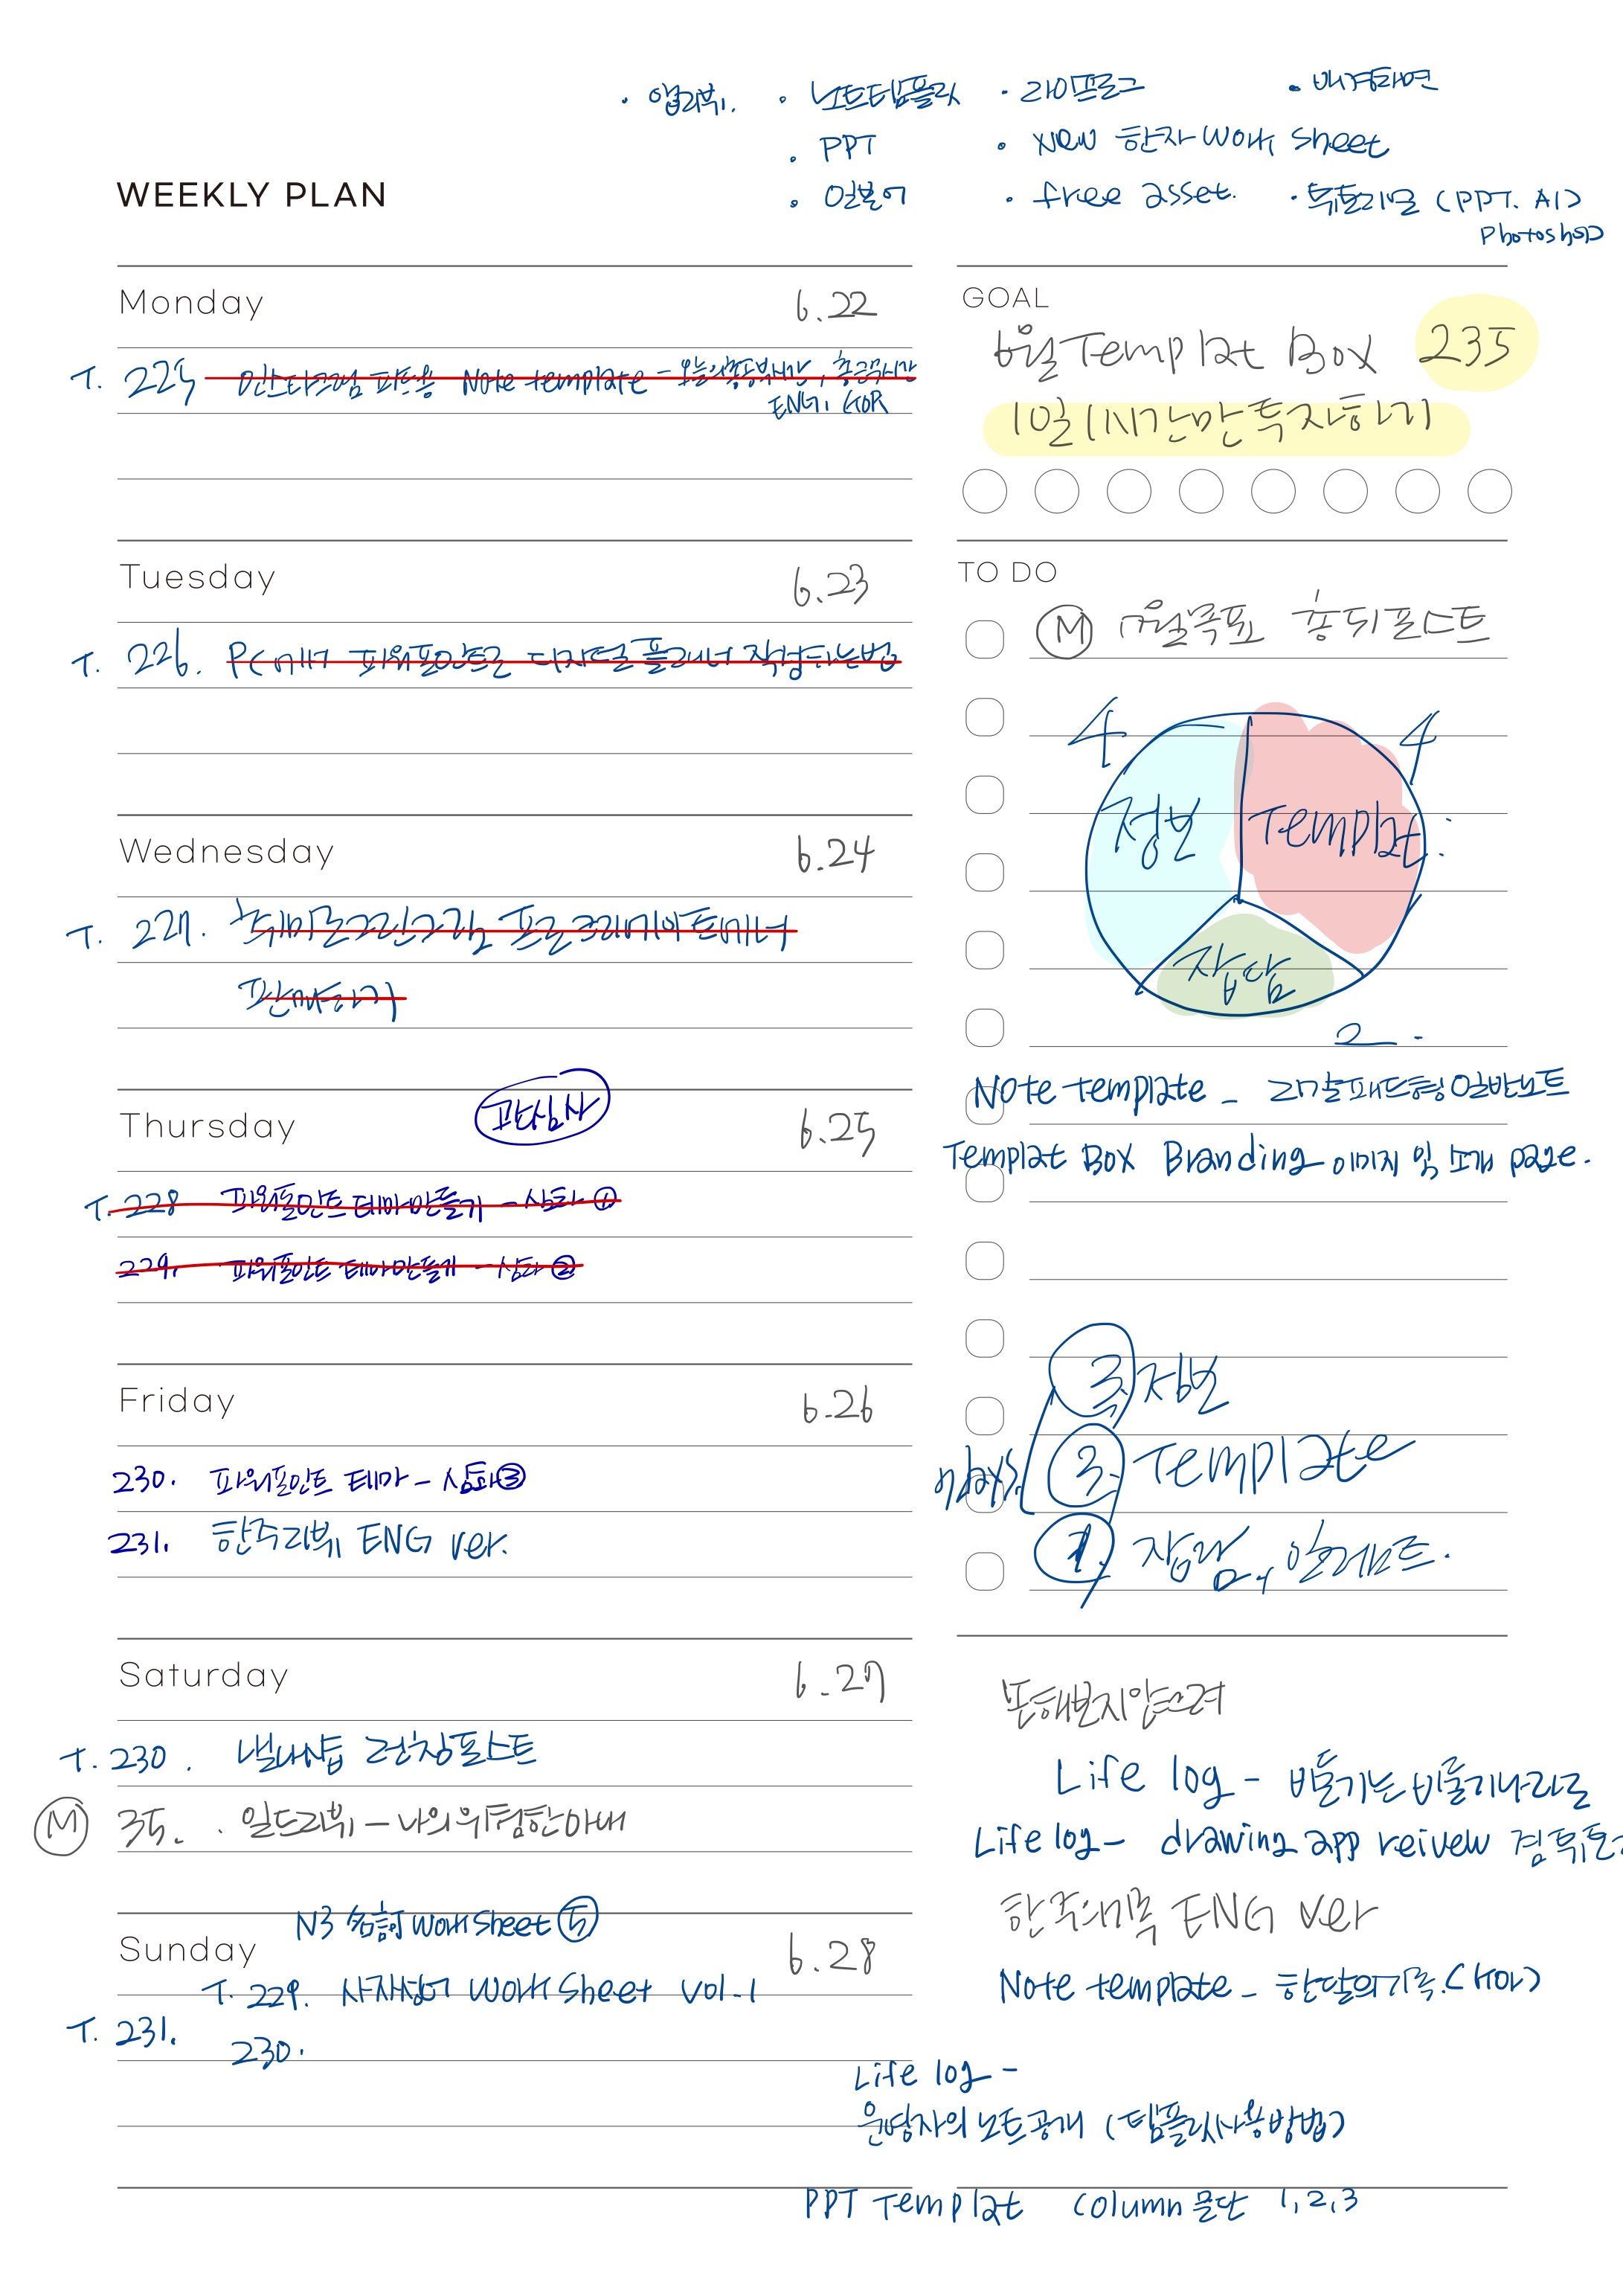 · 앱리뷰. · 노트템플릿 · 라이프로그 · 배경화면
· PPT · New 한자 Work Sheet
· 일본어 · free asset. · 튜토리얼 (PPT. AI)
Photoshop
WEEKLY PLAN
Monday 6.22
T. 225 인스타그램 파트용 Note template - 오늘의 총공부시간, 총근무시간
ENG, KOR
Tuesday 6.23
T. 226. PC에서 파워포인트로 디지털 플래너 작성하는법
Wednesday 6.24
T. 227. 취미로그린그림 프로크리에이트에서
판매하기
Thursday 6.25
T. 228 파워포인트 테마만들기 - 심화 ①
229. 파워포인트 테마만들기 - 심화 ②
Friday 6.26
230. 파워포인트 테마 - 심화③
231. 한주리뷰 ENG ver.
Saturday 6.27
T. 230. 런칭포스트
M 35. 일드리뷰 - 나의위험한아내
N3 名詞 Work Sheet ⑤
Sunday 6.28
T. 229. 사자성어 Work Sheet Vol-1
T. 231.
230.
GOAL
6월 Templat Box 235
1일 1시간만 투자하기
TO DO
M 7월목표 총 위 포스트
4 4
정보 Templat.
잡담
2.
Note template - 리갈패드형 일반노트
Templat Box Branding 이미지 및 소개 page.
3. 정보
7days. 3. Template
1. 잡담,
또해보지않으려
Life log - 비둘기는비둘기나라로
Life log - drawing app reivew 겸 튜토
한주의기록 ENG Ver
Note template - 한달의기록.(KOR)
Life log -
운영자의 노트공개 (템플릿사용방법)
PPT Templat Column 문단 1,2,3